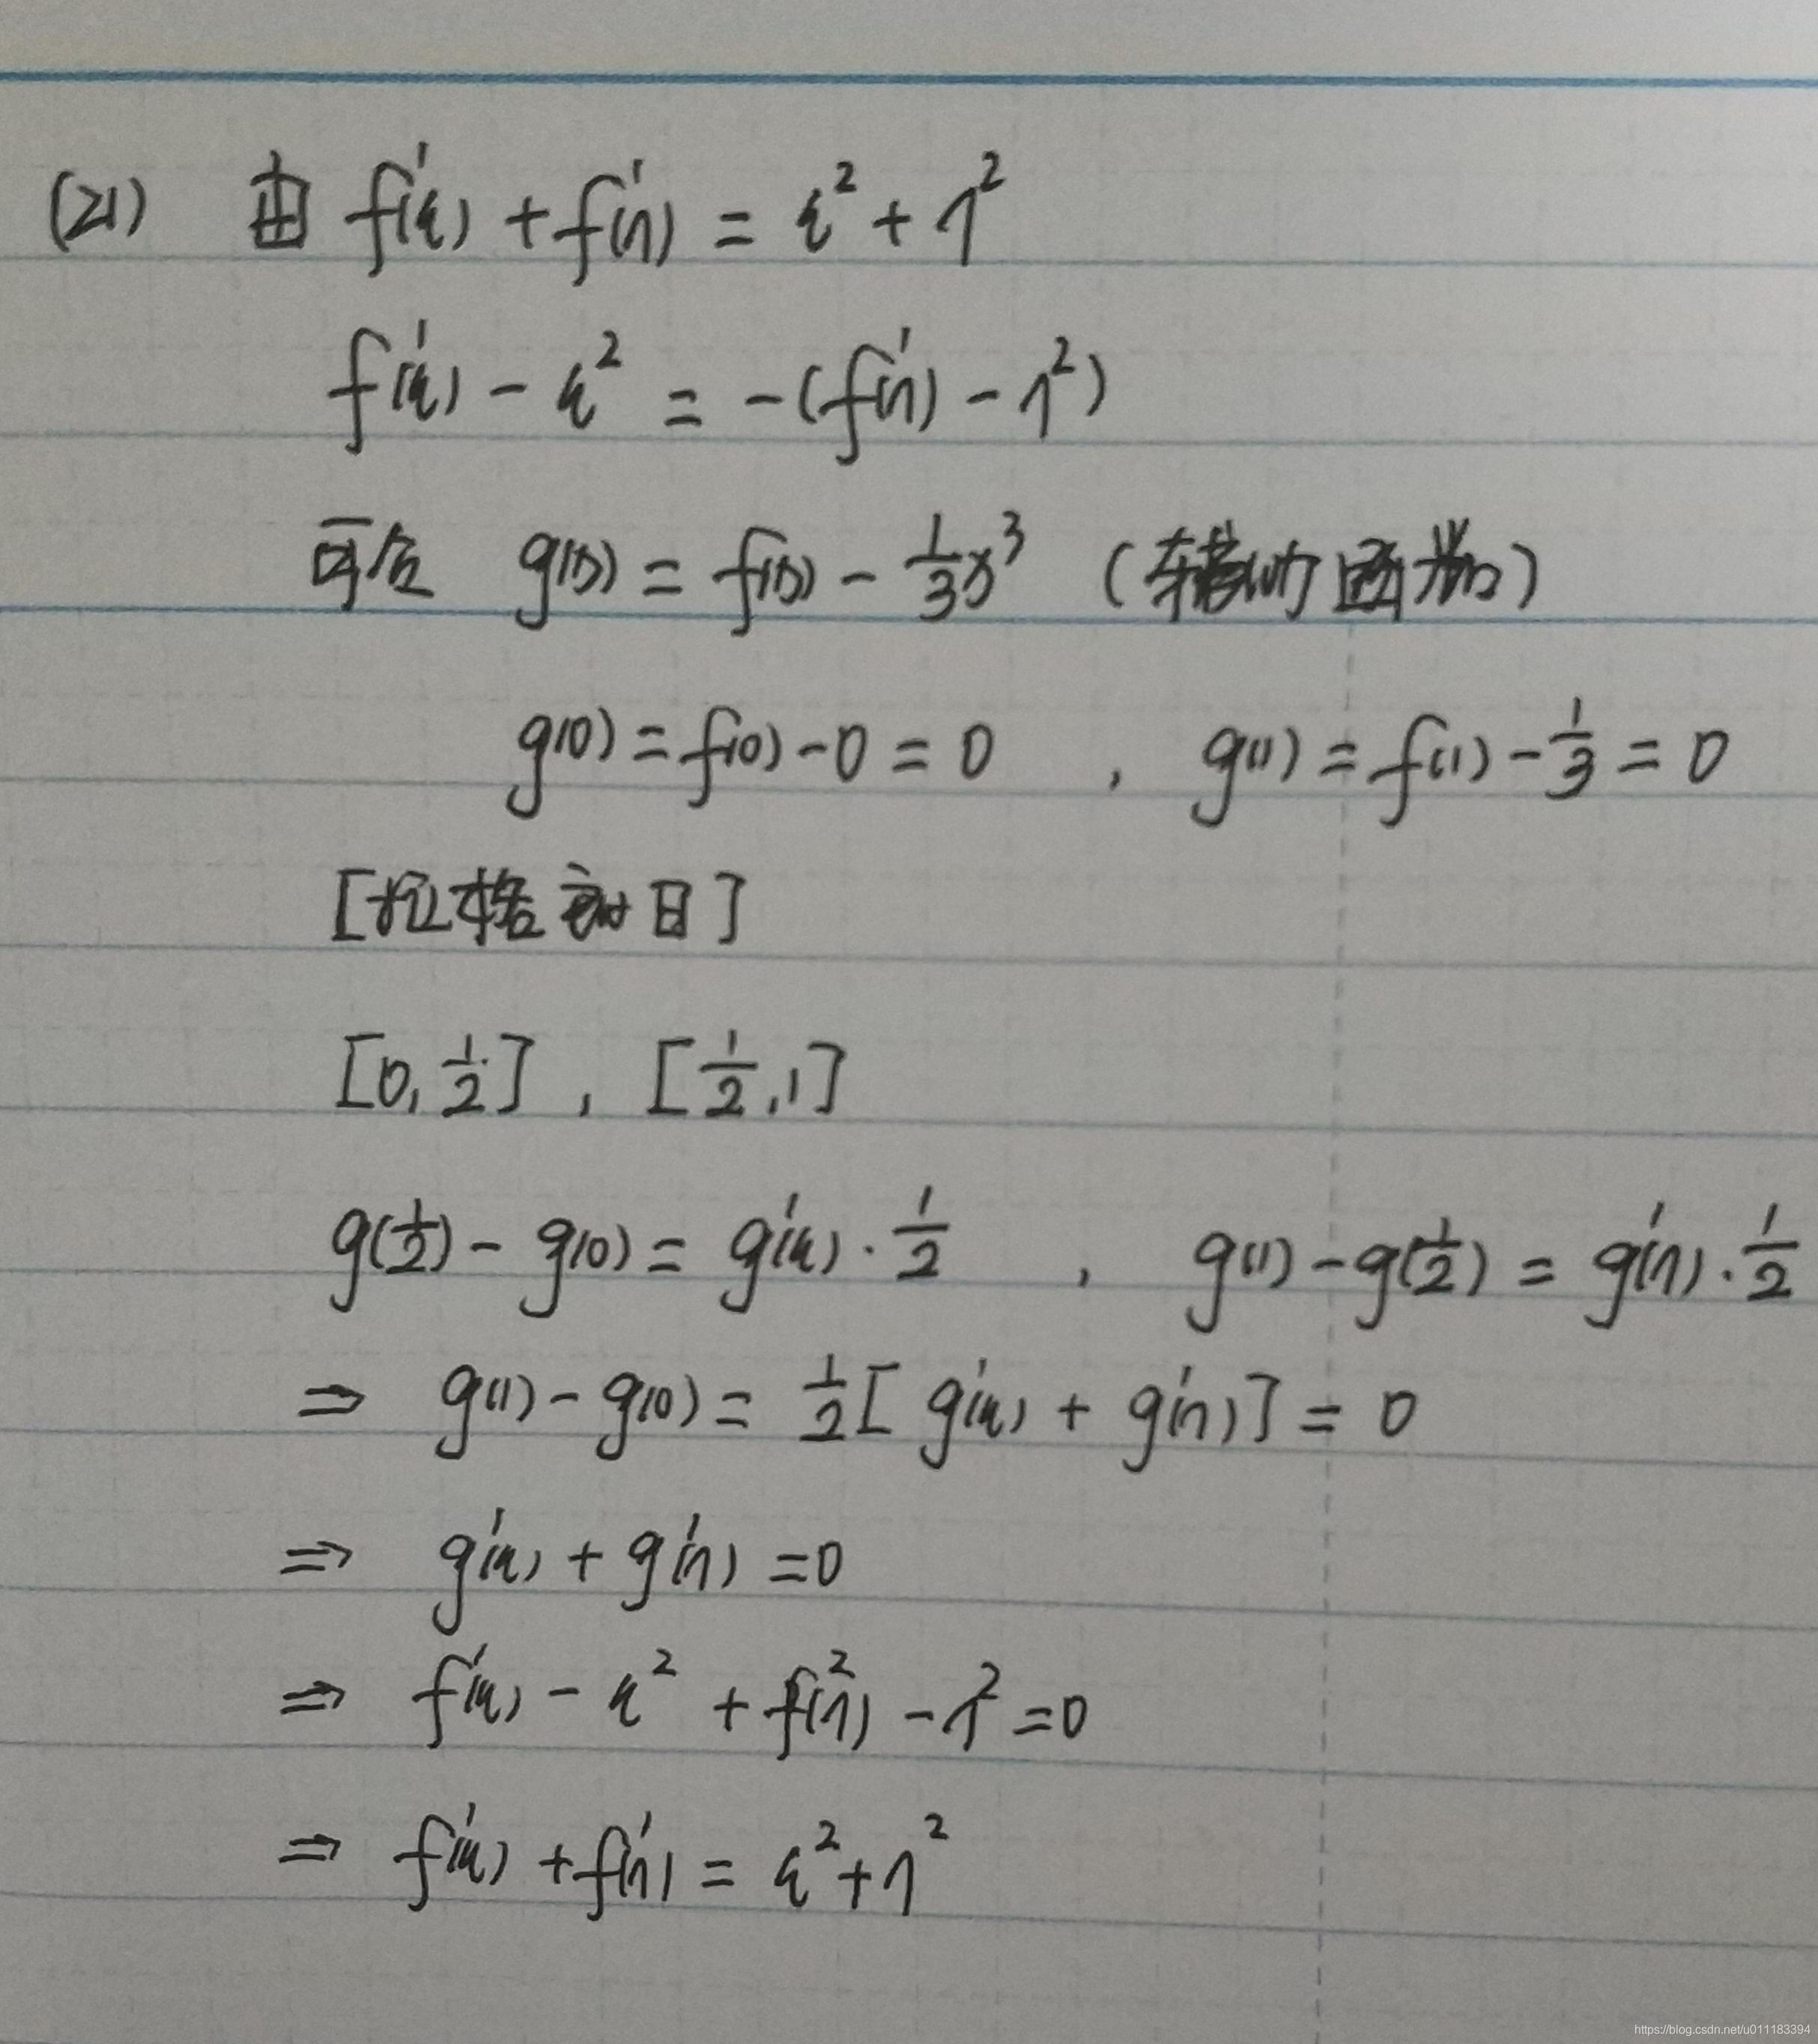 (21) 由 f'(ξ) + f'(η) = ξ² + η²
f'(ξ) - ξ² = -(f'(η) - η²)
可令 g(x) = f(x) - 1/3 x³ (辅助函数)
g(0) = f(0) - 0 = 0 , g(1) = f(1) - 1/3 = 0
[拉格朗日]
[0, 1/2] , [1/2, 1]
g(1/2) - g(0) = g'(ξ) · 1/2 , g(1) - g(1/2) = g'(η) · 1/2
⇒ g(1) - g(0) = 1/2 [ g'(ξ) + g'(η) ] = 0
⇒ g'(ξ) + g'(η) = 0
⇒ f'(ξ) - ξ² + f²(η) - η² = 0
⇒ f'(ξ) + f'(η) = ξ² + η²
https://blog.csdn.net/u011183394